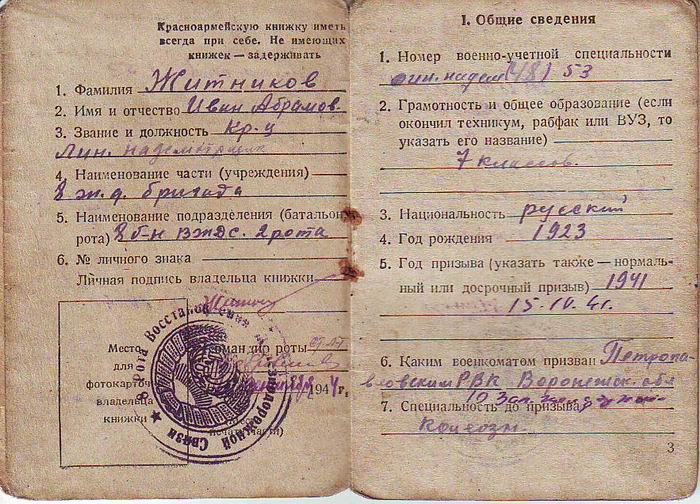 Красноармейскую книжку иметь
всегда при себе. Не имеющих
книжек — задерживать
1. Фамилия Житников
2. Имя и отчество Иван Абрамов.
3. Звание и должность Кр-ц
Лин. надсмотрщик
4. Наименование части (учреждения)
8 ж. д. бригада
5. Наименование подразделения (батальон,
рота) 8 б-н ВЖДС. 2 рота
6. № личного знака
Личная подпись владельца книжки
Место
для
фотокарточки
владельца
книжки
Командир роты
194 г.
Рота Восстановления Железнодорожной Связи
I. Общие сведения
1. Номер военно-учетной специальности
53
2. Грамотность и общее образование (если
окончил техникум, рабфак или ВУЗ, то
указать его название)
7 классов.
3. Национальность русский
4. Год рождения 1923
5. Год призыва (указать также — нормаль-
ный или досрочный призыв) 1941
15.IV.41.
6. Каким военкоматом призван Петропа-
вловским РВК Воронежск. обл
7. Специальность до призыва
3